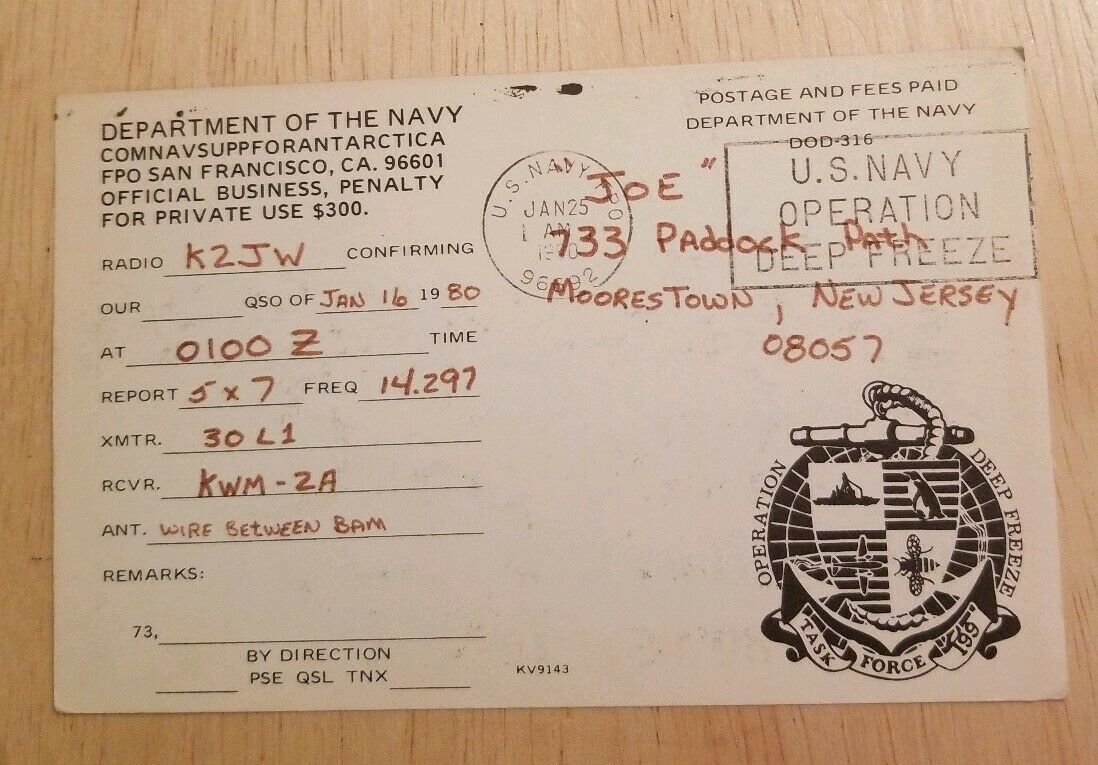 DEPARTMENT OF THE NAVY
COMNAVSUPPFORANTARCTICA
FPO SAN FRANCISCO, CA. 96601
OFFICIAL BUSINESS, PENALTY
FOR PRIVATE USE $300.
POSTAGE AND FEES PAID
DEPARTMENT OF THE NAVY
DOD-316
U.S. NAVY
JAN 25
AM
U.S. NAVY
OPERATION
DEEP FREEZE
"JOE"
733 Paddock Path
Moorestown, New Jersey
08057
RADIO K2JW CONFIRMING
OUR QSO OF JAN 16 1980
AT 0100 Z TIME
REPORT 5 x 7 FREQ 14.297
XMTR. 30L1
RCVR. KWM-2A
ANT. WIRE BETWEEN 8AM
REMARKS:
73,
BY DIRECTION
PSE QSL TNX
KV9143
OPERATION DEEP FREEZE
TASK FORCE 199